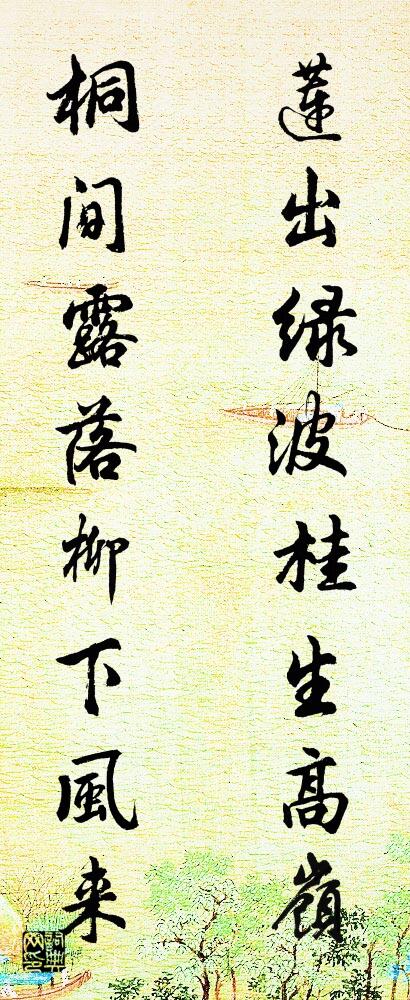 蓮出绿波桂生高嶺
桐间露落柳下風来